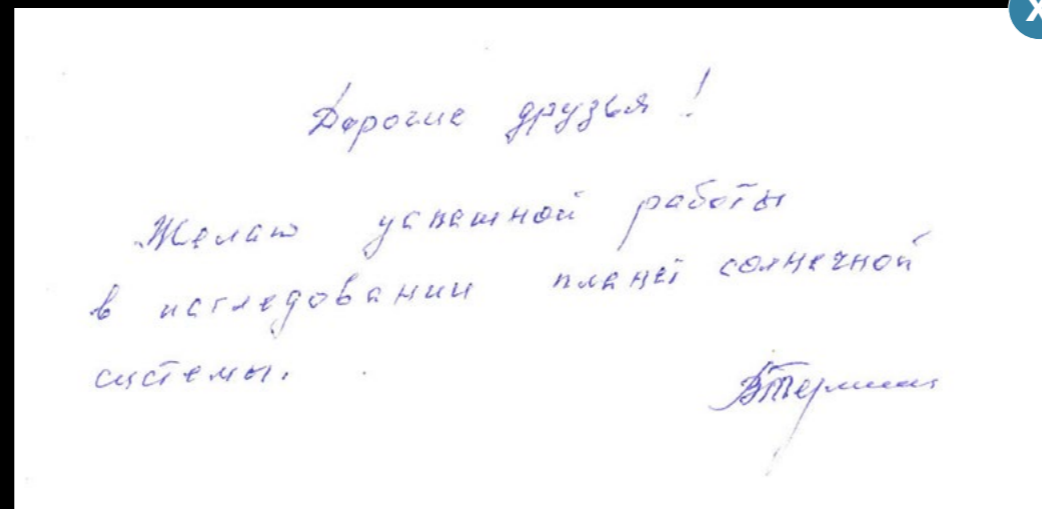 Дорогие друзья!
Желаю успешной работы
в исследовании планет солнечной
системы.